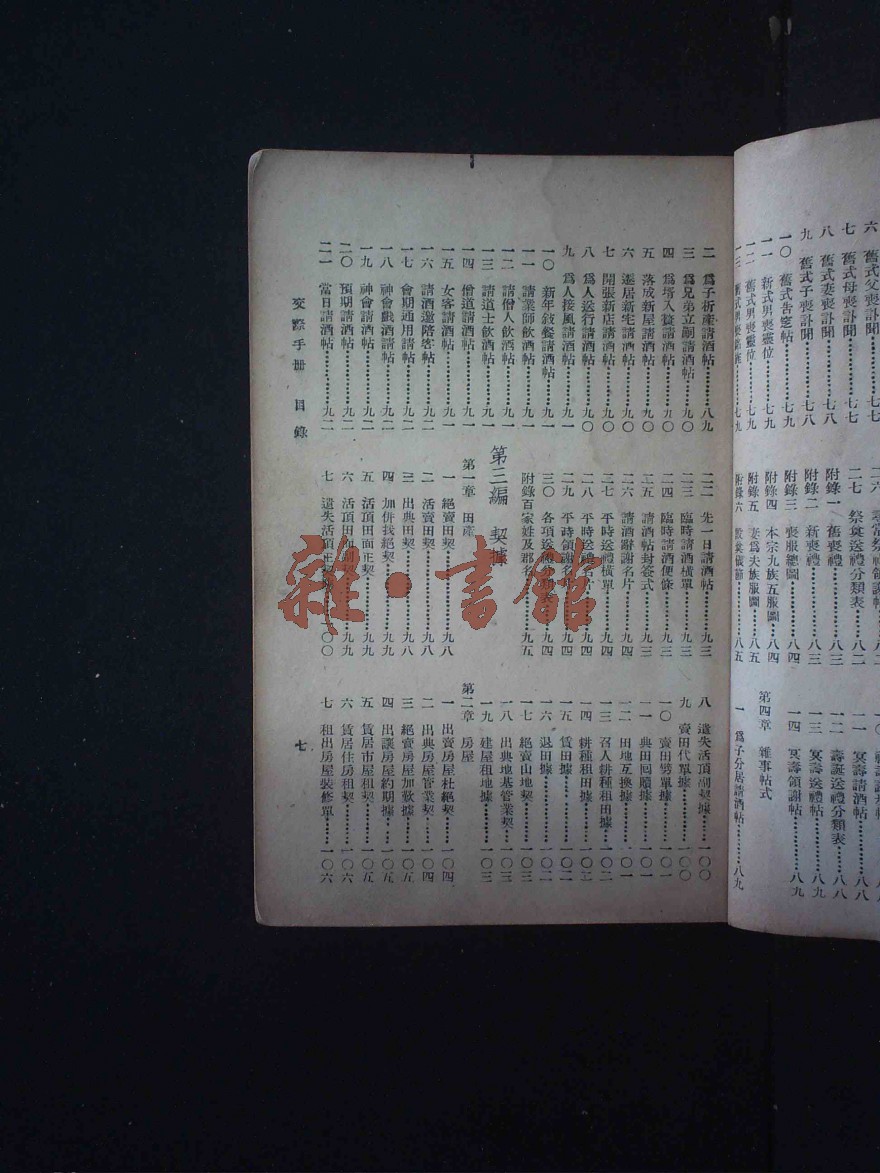 六 舊式父喪訃聞……七七
七 舊式母喪訃聞……七七
八 舊式妻喪訃聞……七八
九 舊式子喪訃聞……七八
一〇 舊式告窆帖……七九
一一 新式男喪靈位……七九
一二 舊式男喪靈位……七九
二七 祭奠送禮分類表……八二
附錄一 舊喪禮……八二
附錄二 新喪禮……八三
附錄三 喪服總圖……八四
附錄四 本宗九族五服圖……八四
附錄五 妻為夫族服圖……八五
一一 冥壽請酒帖……八八
一二 壽誕送禮分類表……八八
一三 冥壽送禮帖……八九
一四 冥壽領謝帖……八九
第四章 雜事帖式
一 爲子分居請酒帖……八九
二 爲子析產請酒帖……八九
三 爲兄弟立嗣請酒帖……九〇
四 爲壻入贅請酒帖……九〇
五 落成新屋請酒帖……九〇
六 遷居新宅請酒帖……九〇
七 開張新店請酒帖……九〇
八 爲人送行請酒帖……九〇
九 爲人接風請酒帖……九一
一〇 新年敍餐請酒帖……九一
一一 請業師飲酒帖……九一
一二 請僧人飲酒帖……九一
一三 請道士飲酒帖……九一
一四 僧道請酒帖……九一
一五 女客請酒帖……九一
一六 請酒邀陪客帖……九二
一七 會期通用請帖……九二
一八 神會戲酒請帖……九二
一九 神會請酒帖……九二
二〇 預期請酒帖……九二
二一 當日請酒帖……九二
二二 先一日請酒帖……九三
二三 臨時請酒橫單……九三
二四 臨時請酒便條……九三
二五 請酒帖封簽式……九三
二六 請酒辭謝名片……九四
二七 平時送禮橫單……九四
二八 平時送禮名片……九四
二九 平時領謝名片……九四
三〇 各項送禮分類表……九四
附錄百家姓及郡名……九五
第三編 契據
第一章 田產
一 絕賣田契……九八
二 活賣田契……九八
三 出典田契……九八
四 加併找絕契……九九
五 活頂田面正契……九九
六 活頂田面副契……九九
七 遺失活頂正契據……一〇〇
八 遺失活頂副契據……一〇〇
九 賣田代單據……一〇〇
一〇 賣田劈單據……一〇一
一一 典田回贖據……一〇一
一二 田地互換據……一〇一
一三 召人耕種租田據……一〇二
一四 耕種租田據……一〇二
一五 賃田據……一〇二
一六 退田據……一〇二
一七 絕賣山地契……一〇三
一八 出典地基管業契……一〇三
一九 建屋租地據……一〇三
第二章 房屋
一 出賣房屋杜絕契……一〇四
二 出典房屋管業契……一〇四
三 絕賣房屋加歎據……一〇五
四 出讓房屋約期據……一〇五
五 賃居市屋租契……一〇五
六 賃居住房租契……一〇六
七 租出房屋裝修單……一〇六
交際手冊 目錄
七
雜·書館